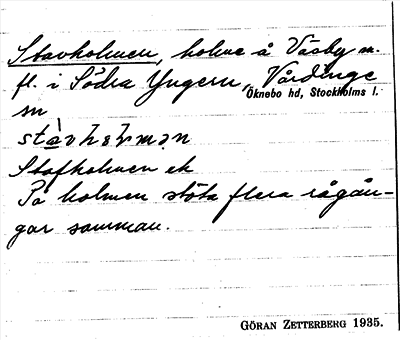 Stavholmen, holme å Väsby m.
fl. i Södra Yngern, Vårdinge
Öknebo hd, Stockholms l.
sn
Stafholmen ek
På holmen stöta flera rågån-
gar samman.
GÖRAN ZETTERBERG 1935.